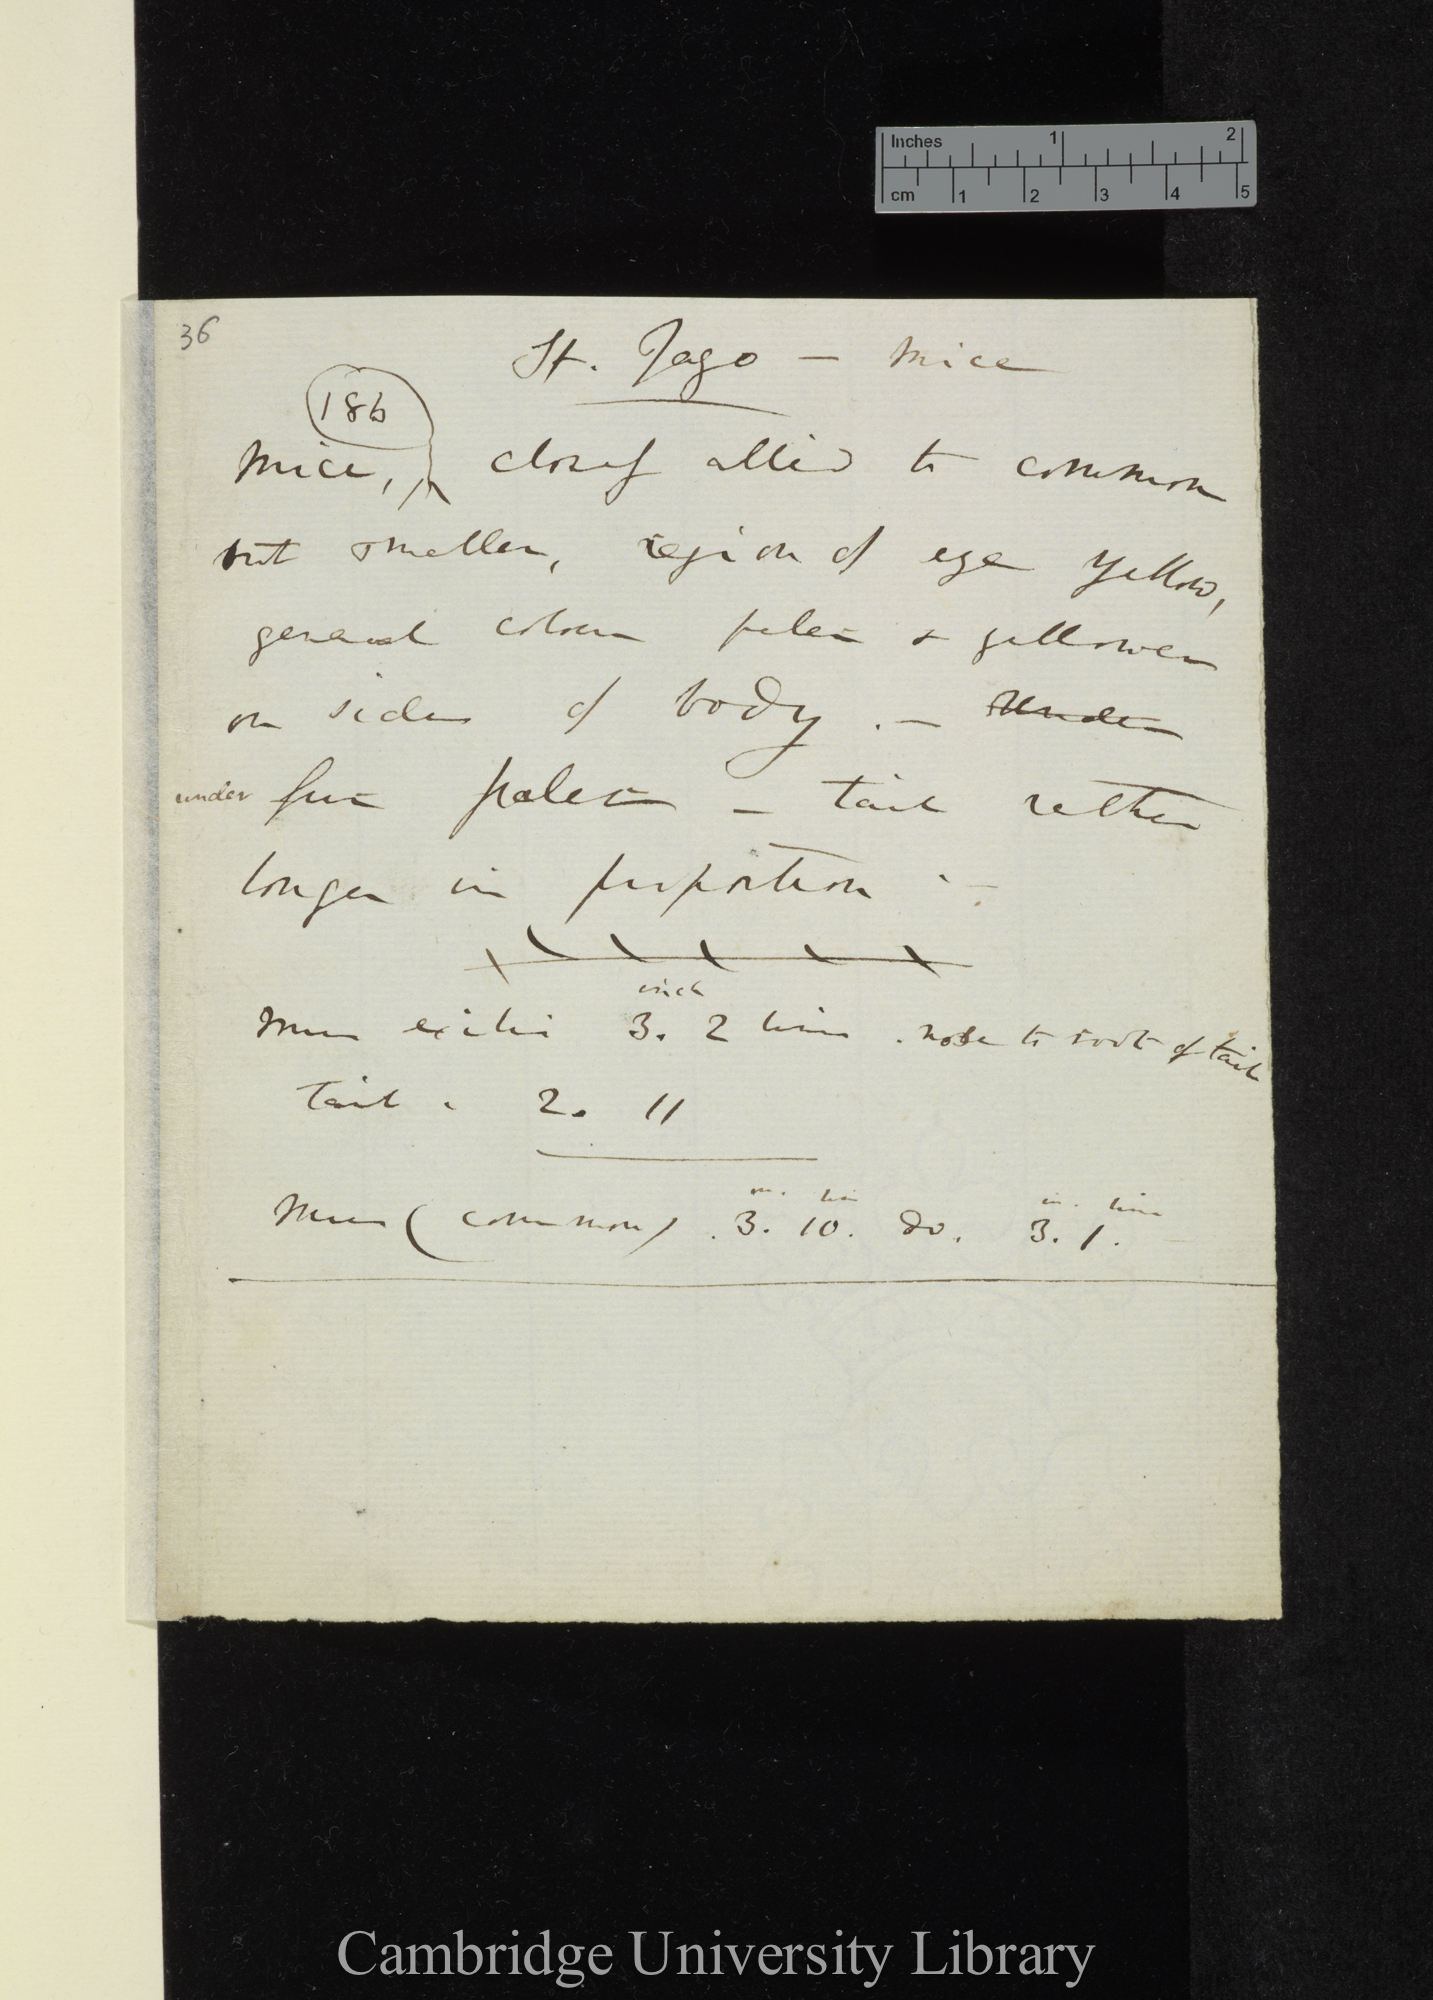 Inches 1 2
cm 1 2 3 4 5
36
St. Jago — Mice
186
Mice, closely allied to common
but smaller, region of eye yellow,
general colour paler & yellower
on sides of body. — Under
under fur paler — tail rather
longer in proportion —
inch
Mus 3. 2 lines. nose to root of tail
Tail. 2. 11
in. lin in. line
Mus (common). 3. 10. do. 3. 1.
Cambridge University Library